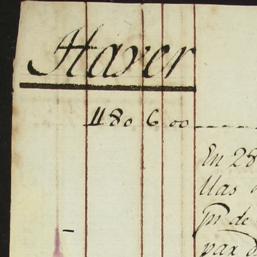 Haver
1180 6 00
En 28
llas
pr de
par d